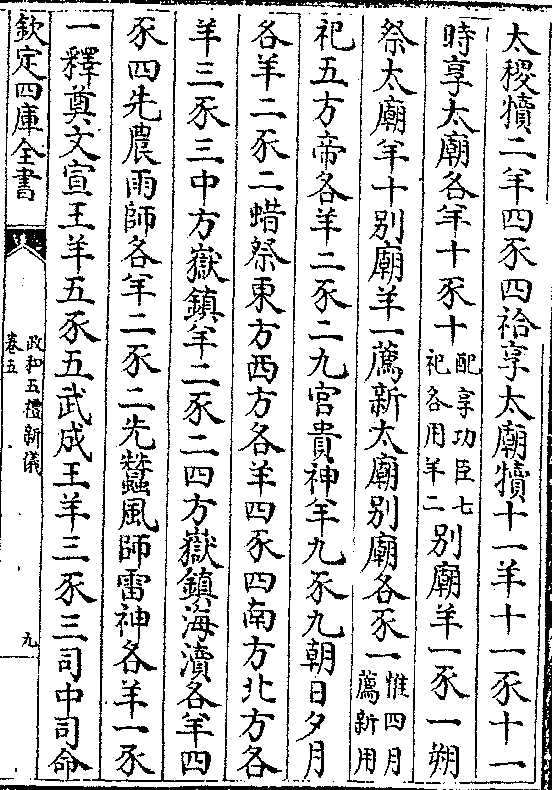 太稷犢二羊四豕四祫享太廟犢十一羊十一豕十一
時享太廟各羊十豕十配享功臣七祀各用羊二別廟羊一豕一朔
祭太廟羊十別廟羊一薦新太廟別廟各豕一惟四月薦新用
祀五方帝各羊二豕二九宮貴神羊九豕九朝日夕月
各羊二豕二蜡祭東方西方各羊四豕四南方北方各
羊三豕三中方嶽鎮羊二豕二四方嶽鎮海瀆各羊四
豕四先農雨師各羊二豕二先蠶風師雷神各羊一豕
一釋奠文宣王羊五豕五武成王羊三豕三司中司命
欽定四庫全書
政和五禮新儀
卷五
九